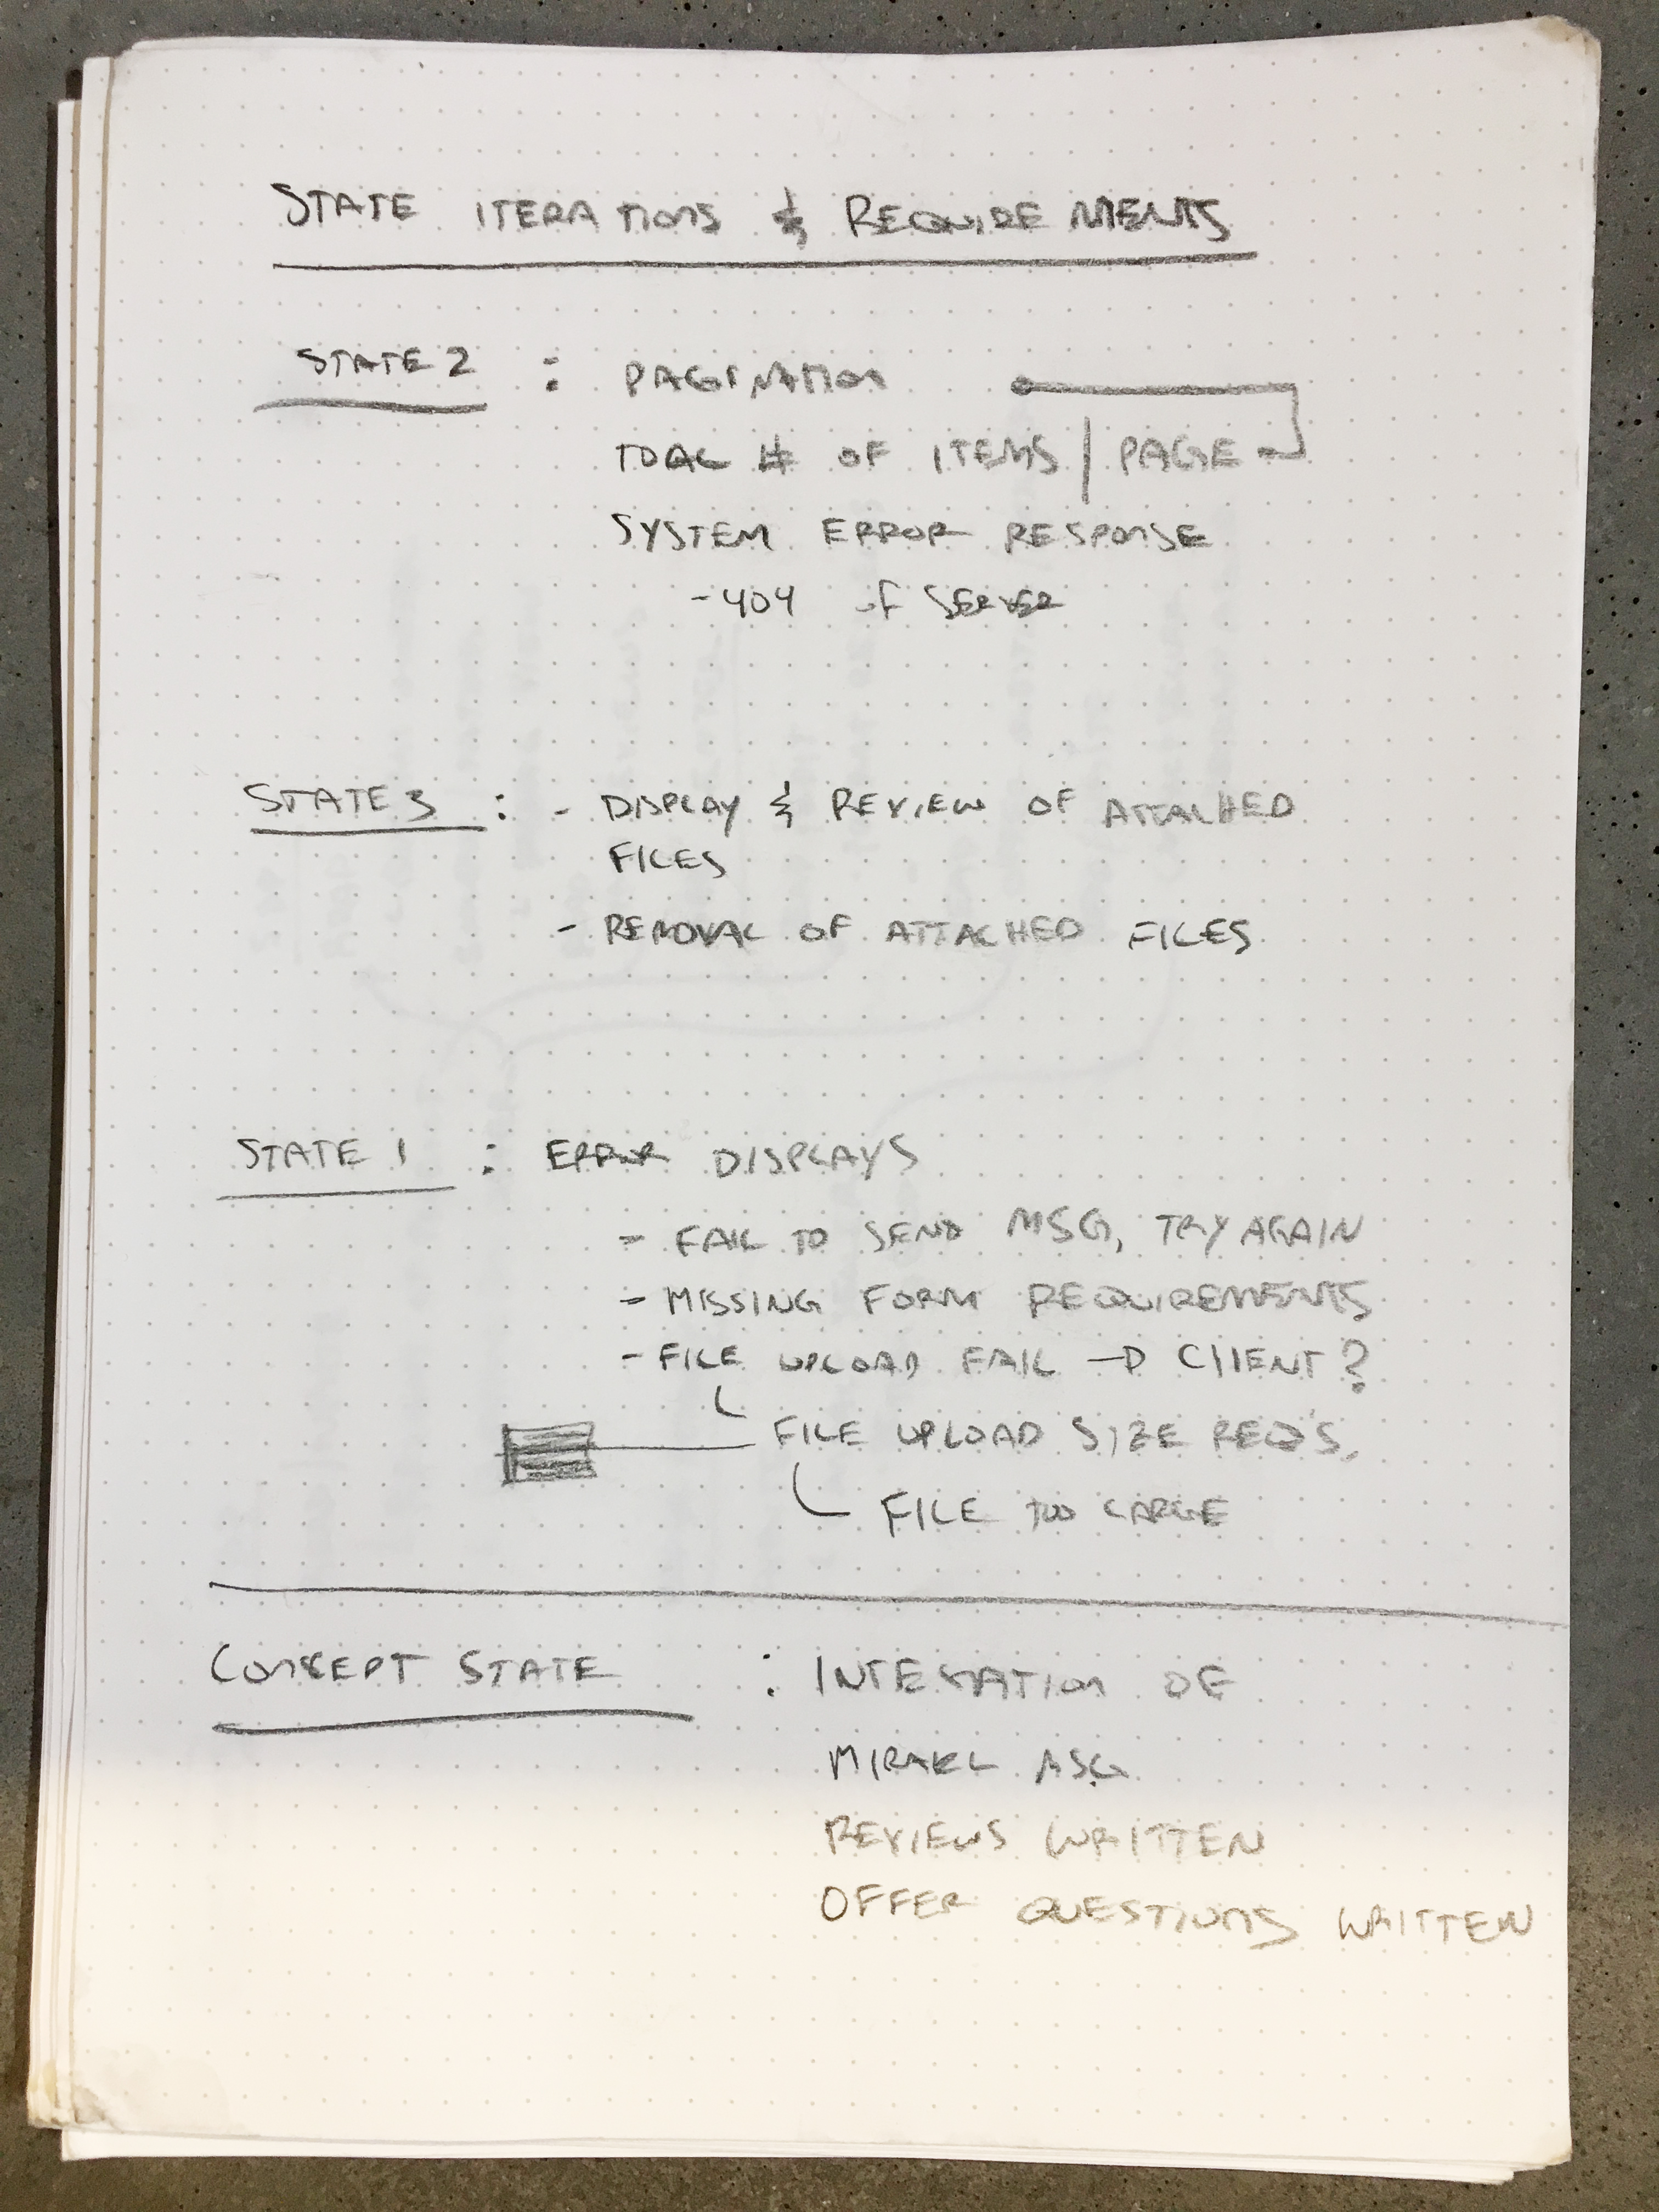 STATE ITERATIONS & REQUIREMENTS
STATE 2 : PAGINATION
TOTAL # OF ITEMS / PAGE
SYSTEM ERROR RESPONSE
- 404 of SERVER
STATE 3 : - DISPLAY & REVIEW OF ATTACHED
FILES
- REMOVAL OF ATTACHED FILES
STATE 1 : ERROR DISPLAYS
- FAIL TO SEND MSG, TRY AGAIN
- MISSING FORM REQUIREMENTS
- FILE UPLOAD FAIL → CLIENT?
FILE UPLOAD SIZE REQ'S.
FILE TOO LARGE
CONCEPT STATE : OF
MIRAKL
REVIEWS WRITTEN
OFFER QUESTIONS WRITTEN